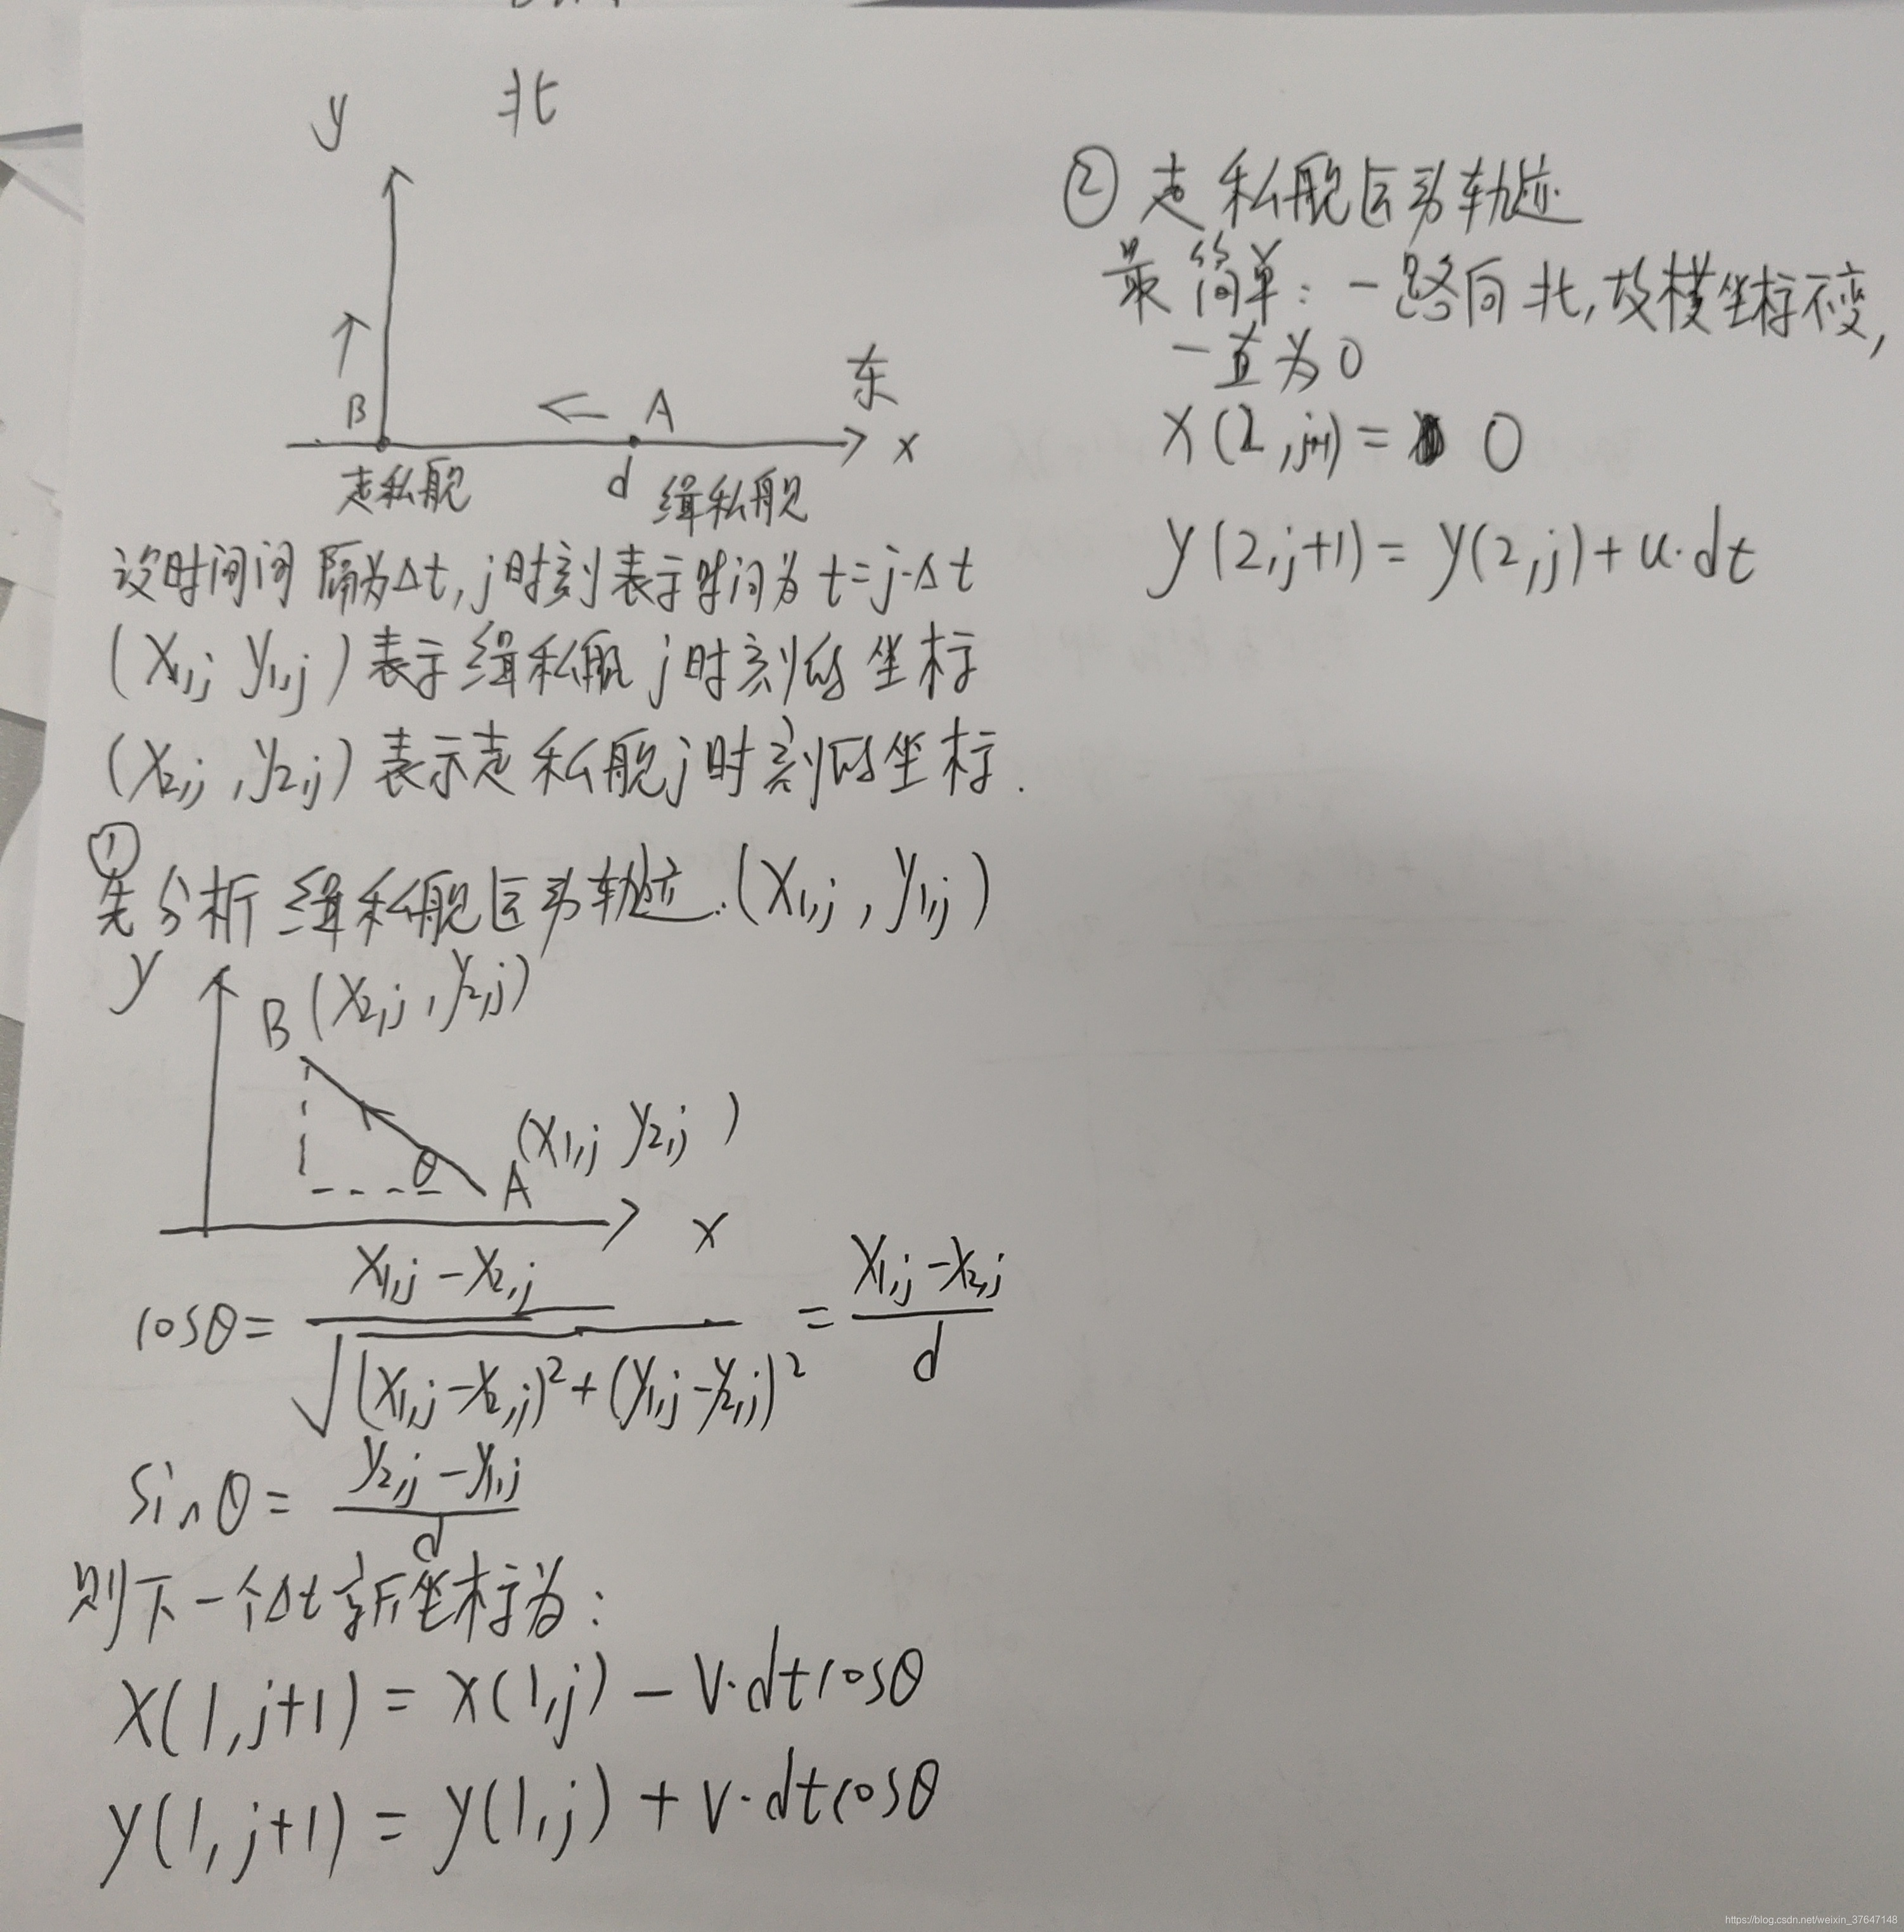 y 北
B ← A 东
x
走私舰 d 缉私舰
设时间间隔为Δt,j时刻表示时间为t=j·Δt
(x1,j y1,j)表示缉私舰j时刻的坐标
(x2,j,y2,j)表示走私舰j时刻的坐标.
①
先分析缉私舰运动轨迹.(x1,j,y1,j)
y B(x2,j,y2,j)
(x1,j y2,j)
θ A
x
cosθ= x1,j-x2,j / √(x1,j-x2,j)²+(y1,j-y2,j)² = x1,j-x2,j / d
sinθ= y2,j-y1,j / d
则下一个Δt新坐标为:
x(1,j+1)=x(1,j)-v·dtcosθ
y(1,j+1)=y(1,j)+v·dtcosθ
②走私舰运动轨迹
最简单:一路向北,故横坐标不变,
一直为0
x(2,j+1)= 0
y(2,j+1)=y(2,j)+u·dt
https://blog.csdn.net/weixin_37647148